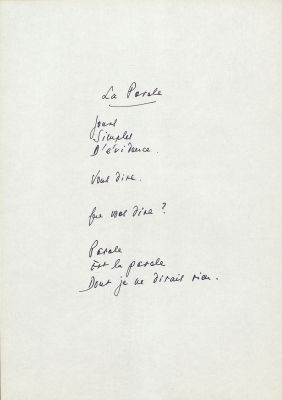 La Parole
Jours
Simples
D'évidence.
Vous dire.
Que vous dire ?
Parole
Est la parole
Dont je ne dirais rien.